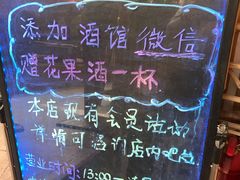 添加酒馆微信
赠花果酒一杯
本店现有会员活动
详情可咨询店内吧台
营业时间:13:00—